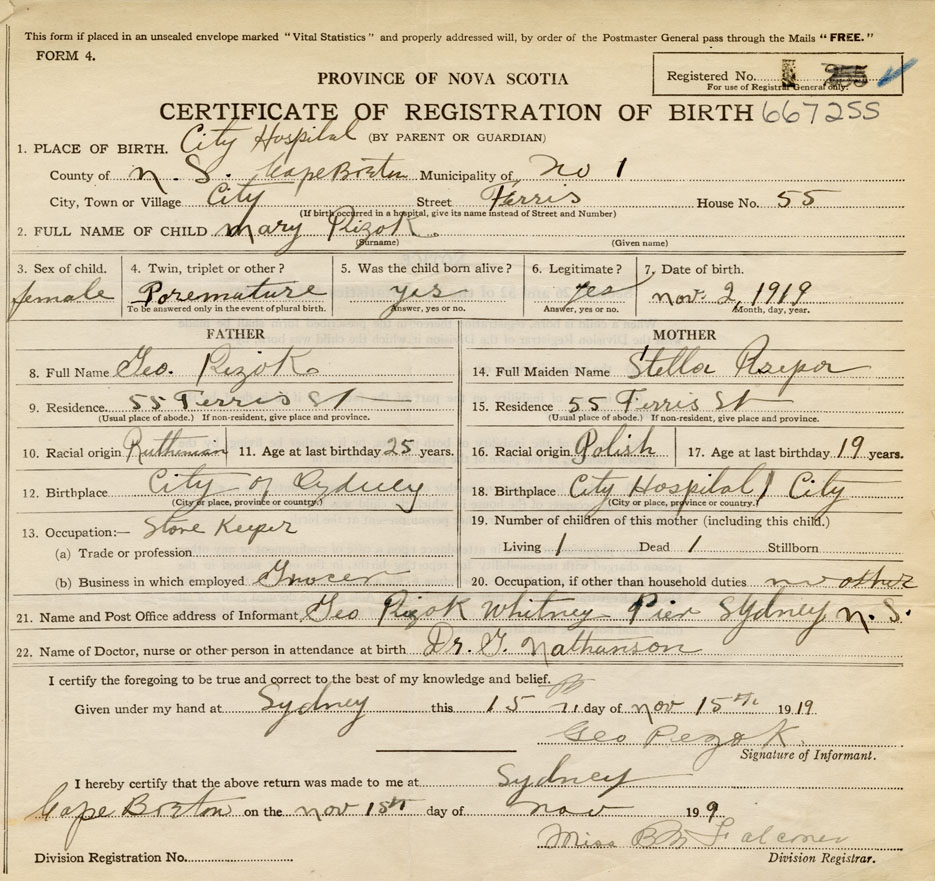 This form if placed in an unsealed envelope marked "Vital Statistics" and properly addressed will, by order of the Postmaster General pass through the Mails "FREE."
FORM 4.
PROVINCE OF NOVA SCOTIA
Registered No. 255
For use of Registrar General only.
CERTIFICATE OF REGISTRATION OF BIRTH 667255
(BY PARENT OR GUARDIAN)
1. PLACE OF BIRTH. City Hospital
County of N. S. Cape Breton Municipality of No 1
City, Town or Village City Street Ferris House No. 55
(If birth occurred in a hospital, give its name instead of Street and Number)
2. FULL NAME OF CHILD Mary Rizok.
(Surname) (Given name)
3. Sex of child. 4. Twin, triplet or other? 5. Was the child born alive? 6. Legitimate? 7. Date of birth.
female Poremature yes yes Nov. 2, 1919
To be answered only in the event of plural birth. Answer, yes or no. Answer, yes or no. Month, day, year.
FATHER MOTHER
8. Full Name Geo. Rizok 14. Full Maiden Name Stella
9. Residence. 55 Ferris St 15. Residence 55 Ferris St
(Usual place of abode.) If non-resident, give place and province. (Usual place of abode.) If non-resident, give place and province.
10. Racial origin Ruthenian 11. Age at last birthday 25 years. 16. Racial origin Polish 17. Age at last birthday 19 years.
12. Birthplace City of Sydney 18. Birthplace City Hospital) City
(City or place, province or country.) (City or place, province or country.)
13. Occupation:— Store Keeper 19. Number of children of this mother (including this child.)
(a) Trade or profession Living 1 Dead 1 Stillborn
(b) Business in which employed Grocer 20. Occupation, if other than household duties no other
21. Name and Post Office address of Informant Geo Rizok Whitney Pier Sydney N. S.
22. Name of Doctor, nurse or other person in attendance at birth Dr. G. Nathanson
I certify the foregoing to be true and correct to the best of my knowledge and belief.
Given under my hand at Sydney this 15 day of Nov 15th 1919
Geo Rezok.
Signature of Informant.
I hereby certify that the above return was made to me at Sydney
Cape Breton on the Nov 15th day of Nov 199
Miss B M Falconer
Division Registration No. Division Registrar.